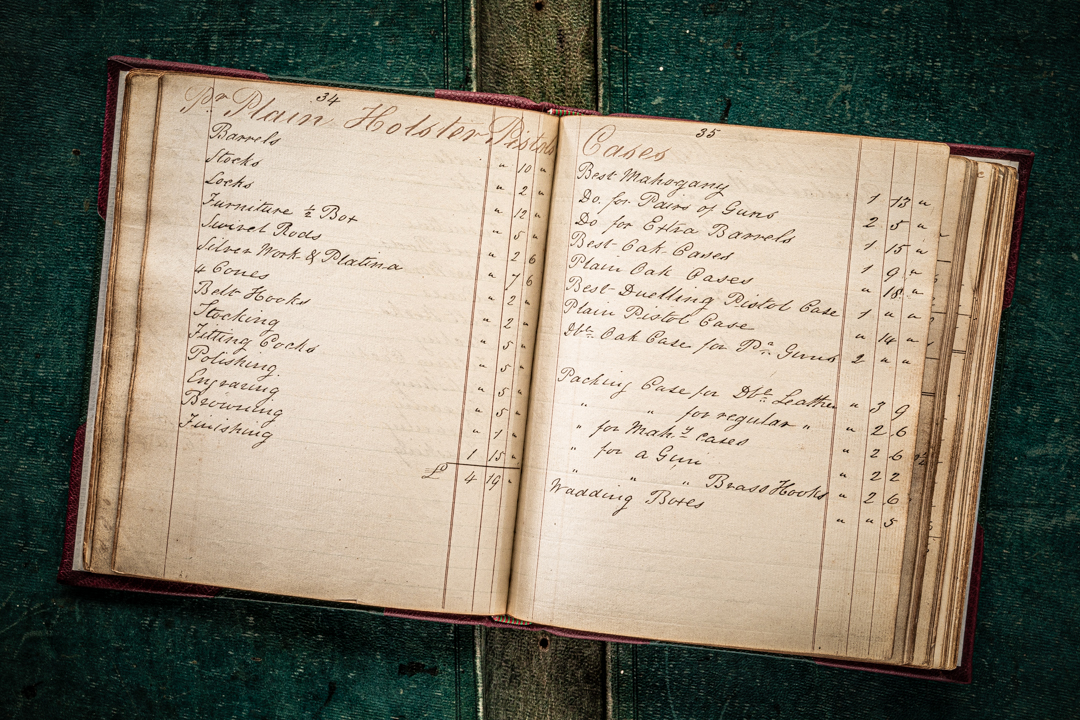 34
Pr Plain Holster Pistols
Barrels " 10 "
Stocks " 2 "
Locks " 12 "
Furniture ½ Box " 5 "
Swivel Rods " 2 6
Silver Work & Platina " 7 6
4 Cones " 2 "
Belt Hooks " 2 "
Stocking " 5 "
Fitting Cocks " 5 "
Polishing " 5 "
Engraving " 5 "
Browning " 1 "
Finishing 1 15 "
£ 4 19 "
35
Cases
Best Mahogany 1 13 "
Do. for Pairs of Guns 2 5 "
Do for Extra Barrels 1 15 "
Best Oak Cases 1 9 "
Plain Oak Cases " 18 "
Best Duelling Pistol Case 1 " "
Plain Pistol Case " 14 "
Dble Oak Case for Pr Guns 2 " "
Packing Case for Dble Leather " 3 9
" " for regular " " 2 6
" for Mahy cases " 2 6
" for a Gun " 2 2
" " Brass Hooks " 2 6
Wadding Boxes " " 5